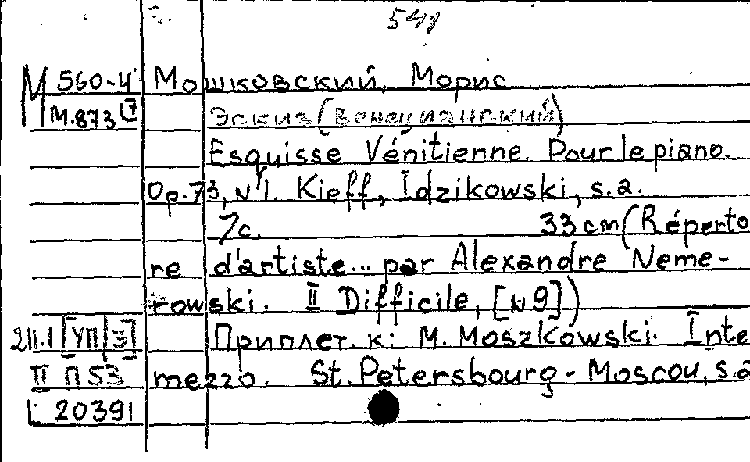 548
М 560-4 Мошковский, Морис
М.873 [7] Эскиз (венецианский)
Esquisse Vénitienne. Pour le piano.
Op.73, N1. Kieff, Idzikowski, s.a.
7с. 33 cm (Réperto
re d'artiste... par Alexandre Neme-
rowski. II Difficile, [N9])
Приплет. к: M. Moszkowski. Inte
II П 53 mezzo. St. Petersbourg - Moscou, s.a
L 20391